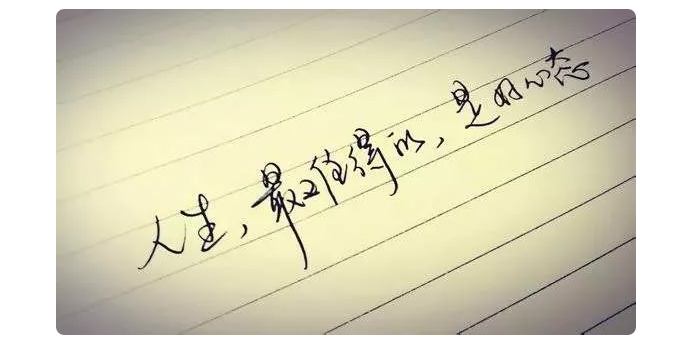 人生，最值得的，是好心态